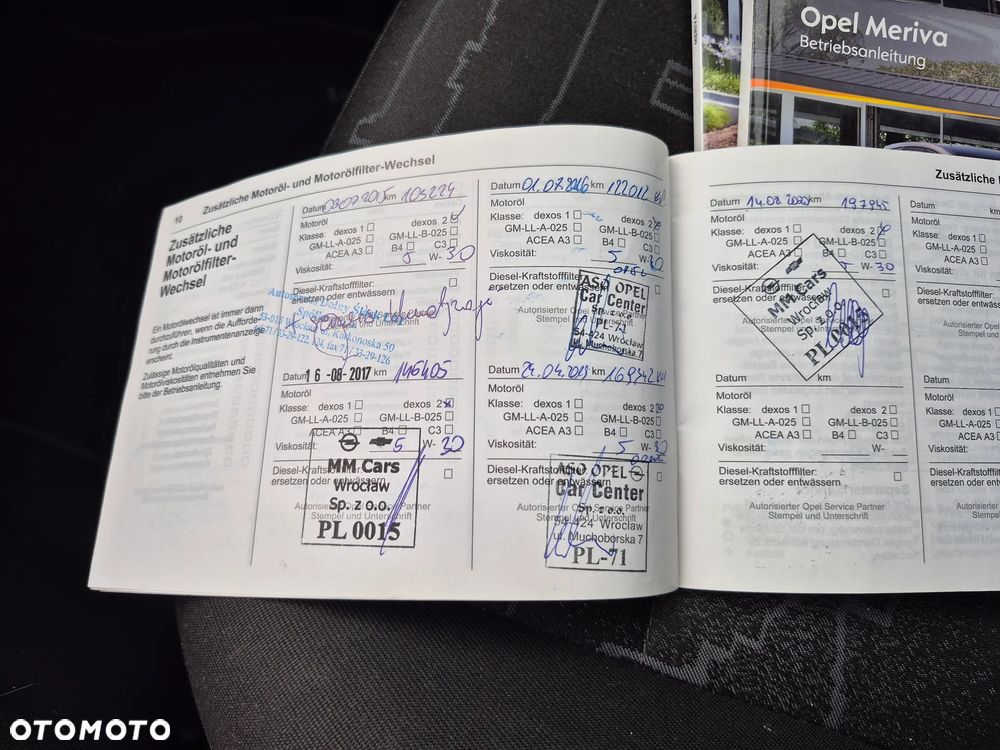 Opel Meriva
Betriebsanleitung
10 Zusätzliche Motoröl- und Motorölfilter-Wechsel
Zusätzliche
Motoröl- und
Motorölfilter-
Wechsel
Ein Motorölwechsel ist immer dann
durchzuführen, wenn die Aufforde-
rung durch die Instrumentenanzeige
erscheint.
Zulässige Motorölqualitäten und
Motorölviskositäten entnehmen Sie
bitte der Betriebsanleitung.
Datum 03.07.2015 km 103224
Motoröl
Klasse: dexos 1 dexos 2
GM-LL-A-025 GM-LL-B-025
ACEA A3 B4 C3
Viskosität: 5 W- 30
Diesel-Kraftstofffilter:
ersetzen oder entwässern
Stempel und Unterschrift
Datum 16-08-2017 km 146405
Motoröl
Klasse: dexos 1 dexos 2
GM-LL-A-025 GM-LL-B-025
ACEA A3 B4 C3
Viskosität: 5 W- 30
Diesel-Kraftstofffilter:
ersetzen oder entwässern
MM Cars
Wrocław
Sp. z o.o.
PL 0015
Autorisierter Opel Service Partner
Stempel und Unterschrift
Datum 01.07.2016 km 122012
Motoröl
Klasse: dexos 1 dexos 2
GM-LL-A-025 GM-LL-B-025
ACEA A3 B4 C3
Viskosität: 5 W- 30
Diesel-Kraftstofffilter:
ersetzen oder entwässern
ASO OPEL
Car Center
Sp. z o.o.
PL-71
54-424 Wrocław
ul. Muchoborska 7
Autorisierter Opel Service Partner
Stempel und Unterschrift
Datum 24.04.2019 km 169342
Motoröl
Klasse: dexos 1 dexos 2
GM-LL-A-025 GM-LL-B-025
ACEA A3 B4 C3
Viskosität: 5 W- 30
Diesel-Kraftstofffilter:
ersetzen oder entwässern
ASO OPEL
Car Center
Sp. z o.o.
54-424 Wrocław
ul. Muchoborska 7
PL-71
Autorisierter Opel Service Partner
Stempel und Unterschrift
Zusätzliche
Datum 14.08.2020 km 197945
Motoröl
Klasse: dexos 1 dexos 2
GM-LL-A-025 GM-LL-B-025
ACEA A3 B4 C3
Viskosität: 5 W- 30
Diesel-Kraftstofffilter:
ersetzen oder entwässern
MM Cars
Wrocław
Sp. z o.o.
PL 0015
Datum km
Motoröl
Klasse: dexos 1 dexos 2
GM-LL-A-025 GM-LL-B-025
ACEA A3 B4 C3
Viskosität: W-
Diesel-Kraftstofffilter:
ersetzen oder entwässern
Autorisierter Opel Service Partner
Stempel und Unterschrift
Datum
Motoröl
Klasse: dexos
GM-LL-A-025
ACEA A3
Viskosität:
Diesel-Kraftstofffilter
ersetzen oder entwä
Datum
Motoröl
Klasse: dexos
GM-LL-A-025
ACEA A3
Viskosität:
Diesel-Kraftstofffilter
ersetzen oder entwä
OTOMOTO